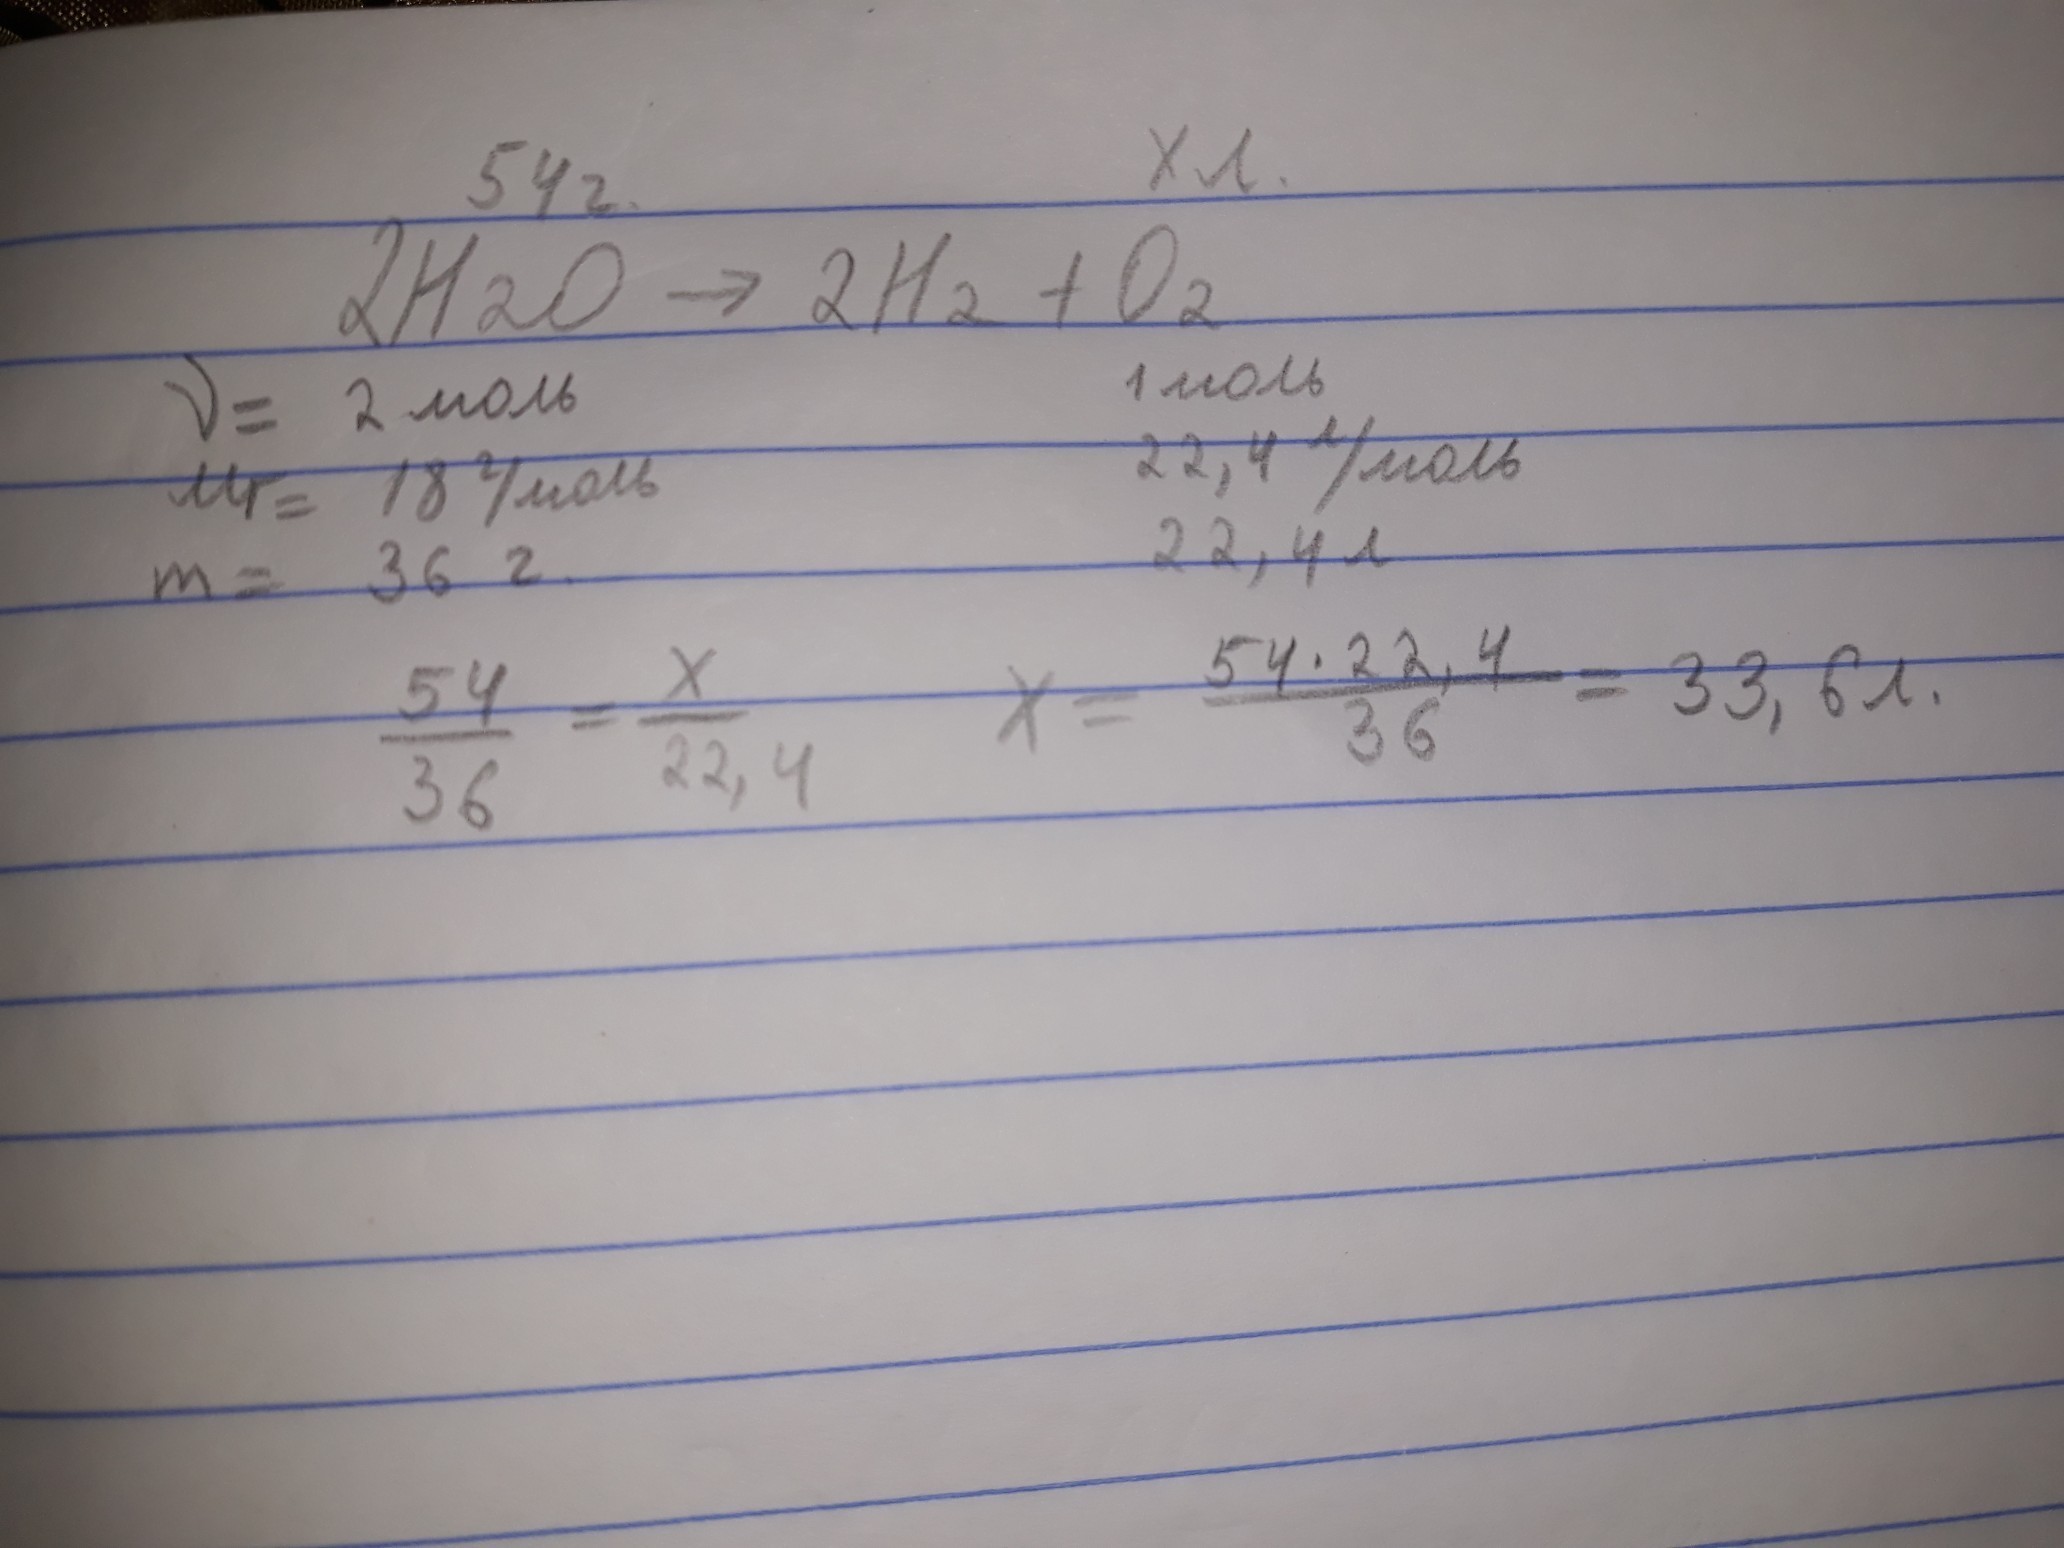 54г. хл.
2H2O → 2H2 + O2
ν = 2 моль 1 моль
Mr = 18 г/моль 22,4 л/моль
m = 36 г. 22,4 л
54/36 = x/22,4 x = 54·22,4/36 = 33,6 л.